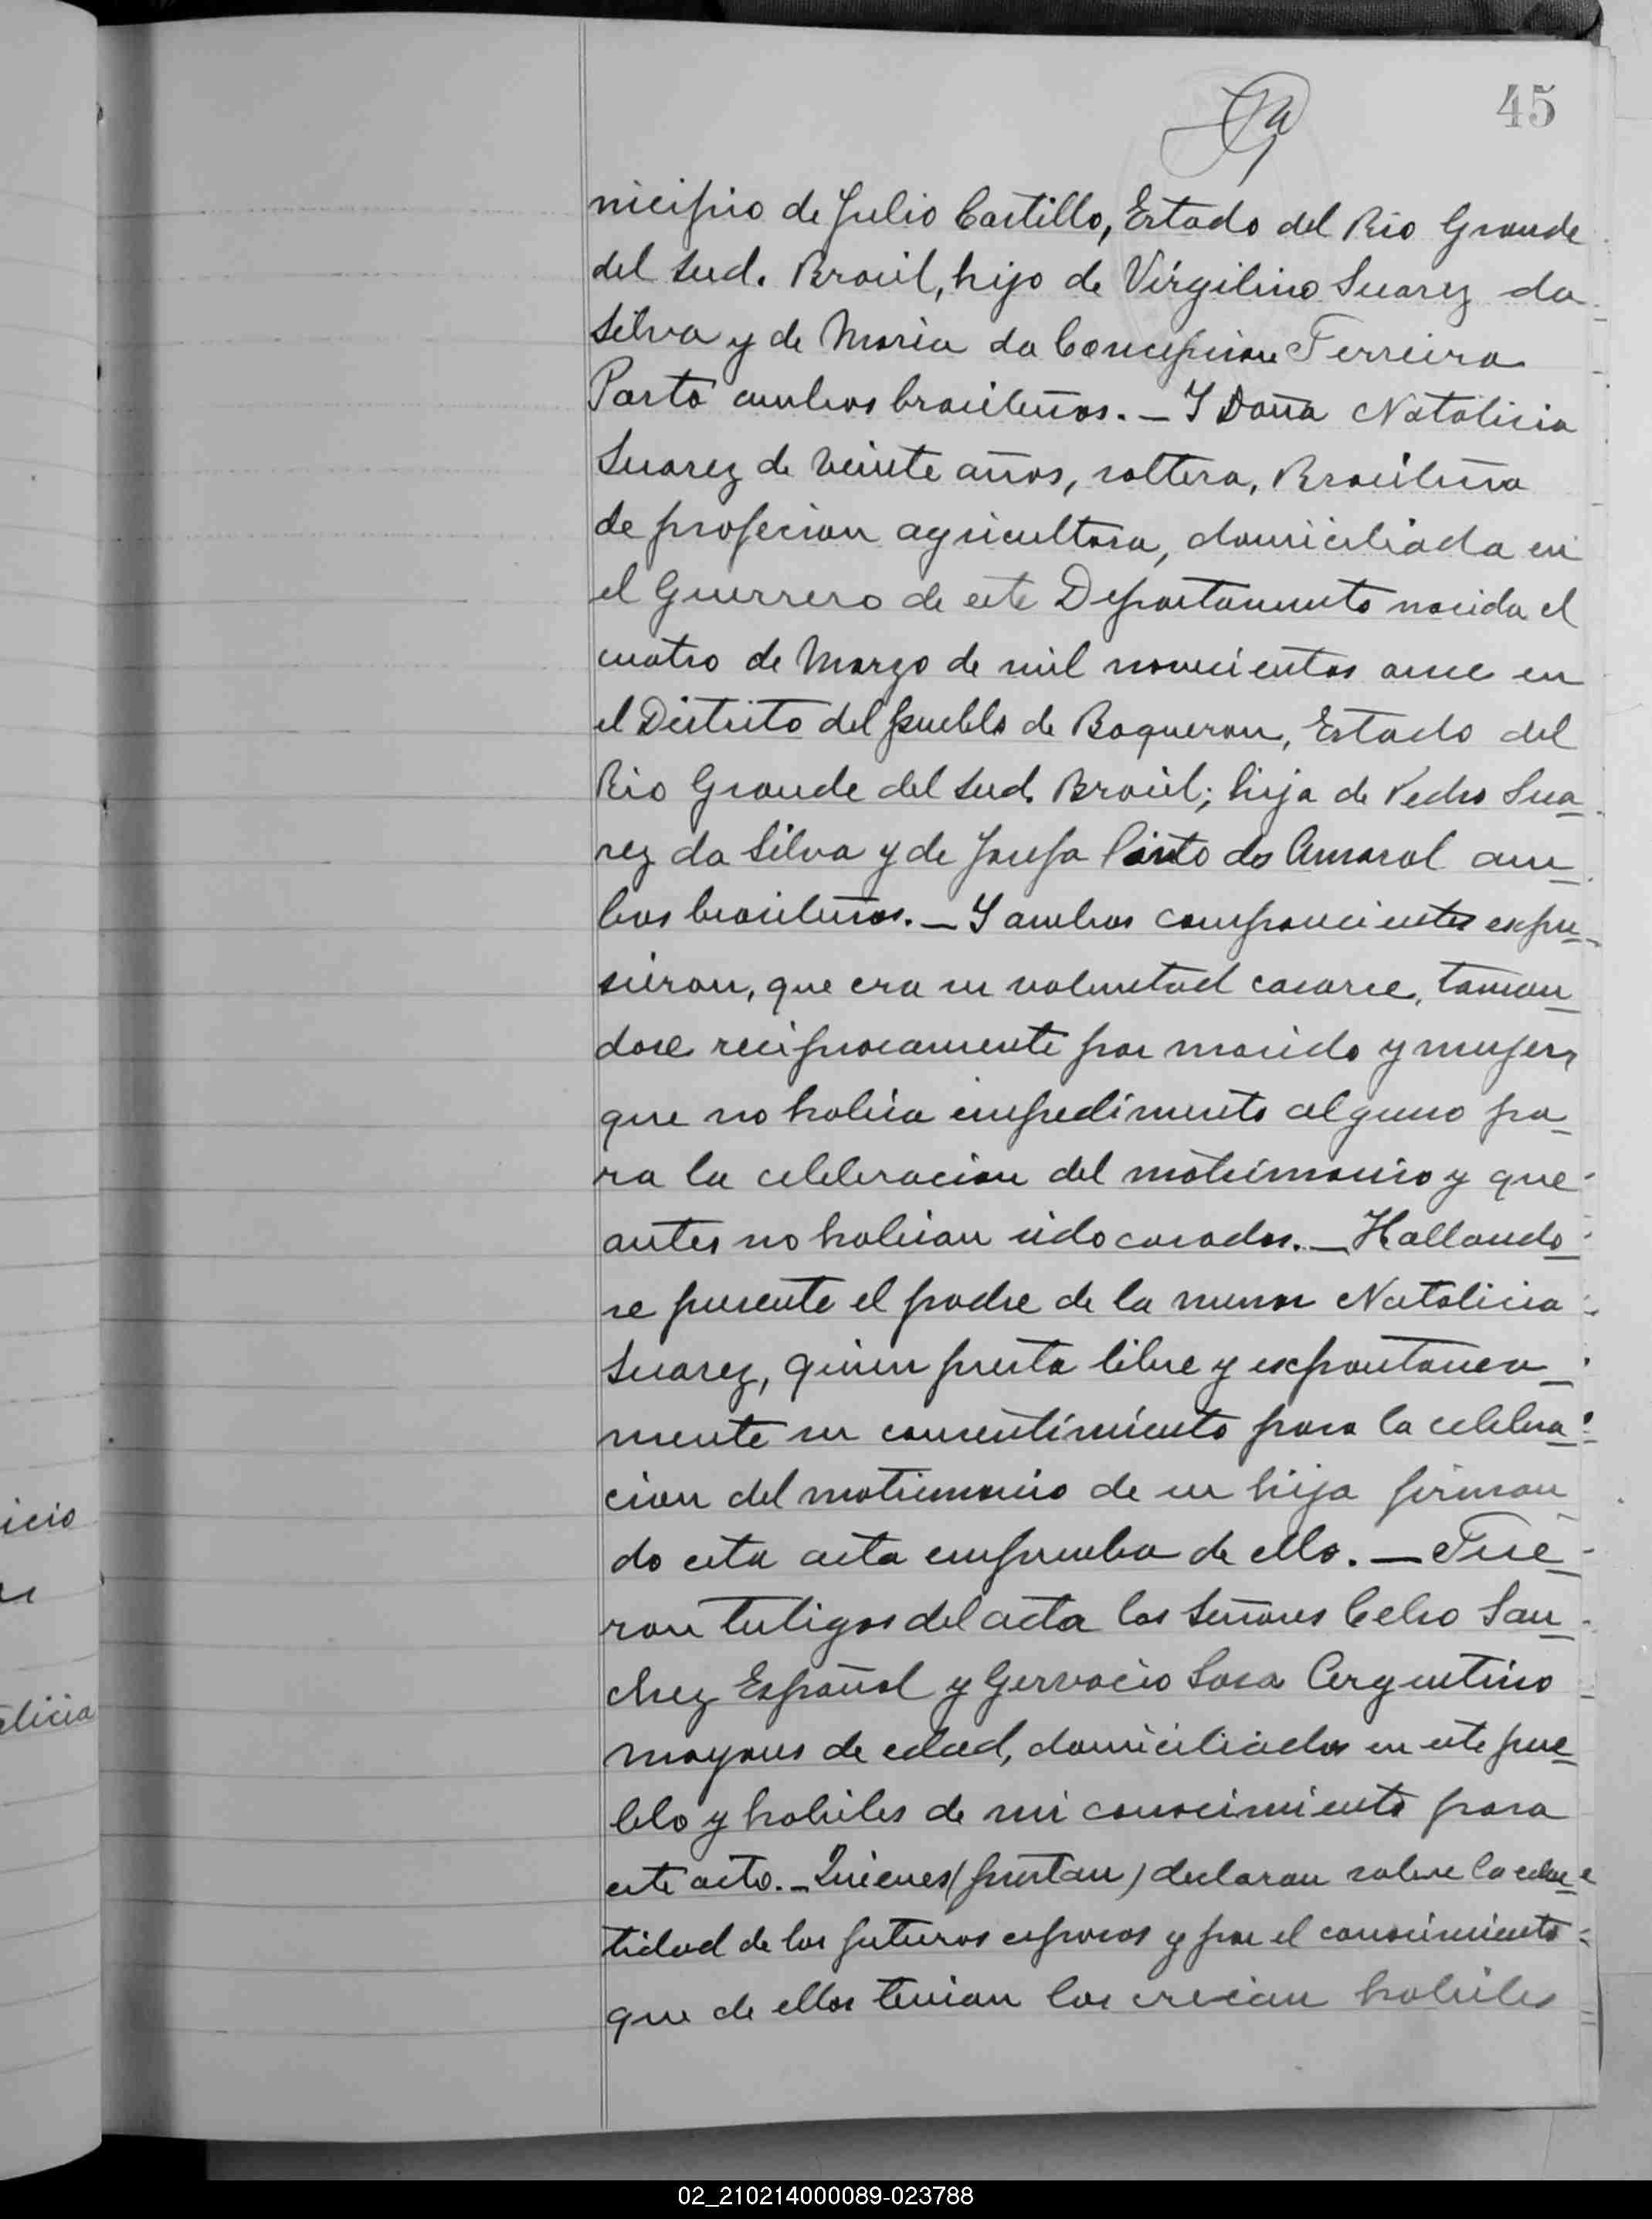 45
nicipio de Julio Castillo, Estado del Rio Grande
del Sud. Brasil, hijo de Virgilino Suarez da
Silva y de Maria da Concepcion Ferreira
Porto ambos brasileños. — Y Doña Natalicia
Suarez de veinte años, soltera, Brasileña
de profecion agricultora, domiciliada en
el Guerrero de este Departamento nacida el
cuatro de Marzo de mil novecientos once en
el Distrito del pueblo de Boqueron, Estado del
Rio Grande del Sud. Brasil; hija de Pedro Sua-
rez da Silva y de Josefa Pinto do Amaral am-
bos brasileños. — Y ambos comparecientes expu-
sieron, que era su voluntad casarse, toman-
dose reciprocamente por marido y mujer,
que no habia impedimento alguno pa-
ra la celebracion del matrimonio y que
antes no habian sido casados. — Hallando-
se presente el padre de la menor Natalicia
Suarez, quien presta libre y expontanea-
mente su consentimiento para la celebra-
cion del matrimonio de su hija firman
do esta acta emprueba de ello. — Fue-
ron testigos del acta los Señores Celso San-
chez Español y Gervacio Sosa Argentino
mayores de edad, domiciliados en este pue-
blo y habiles de mi conocimiento para
este acto. — Quienes (prestan) declaran sobre la
tidad de los futuros esposos y por el conocimiento
que de ellos tenian los creian habiles
icio
elicia
02_210214000089-023788